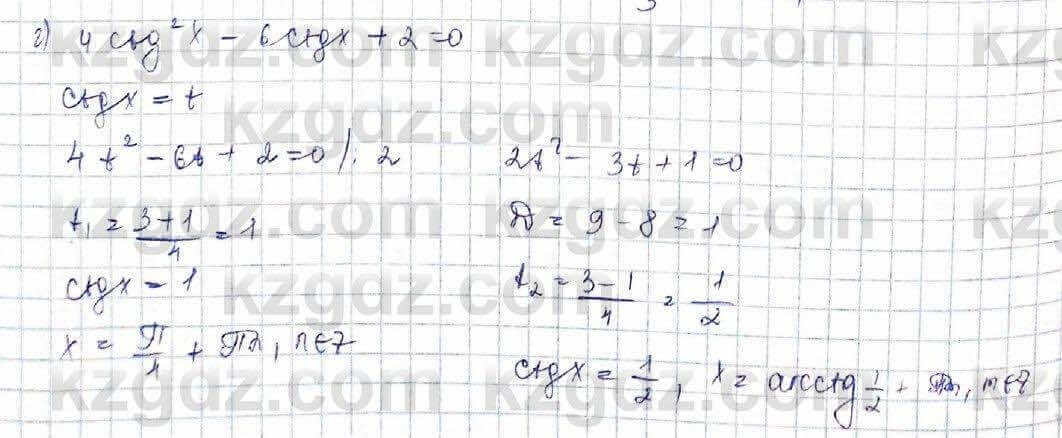 г) 4 ctg²x - 6ctgx + 2 = 0
ctgx = t
4t² - 6t + 2 = 0 /: 2
2t² - 3t + 1 = 0
t₁ = (3+1)/4 = 1
D = 9 - 8 = 1
ctgx = 1
t₂ = (3-1)/4 = 1/2
x = π/4 + πn, n∈Z
ctgx = 1/2, x = arcctg 1/2 + πn, n∈Z
kzgdz.com